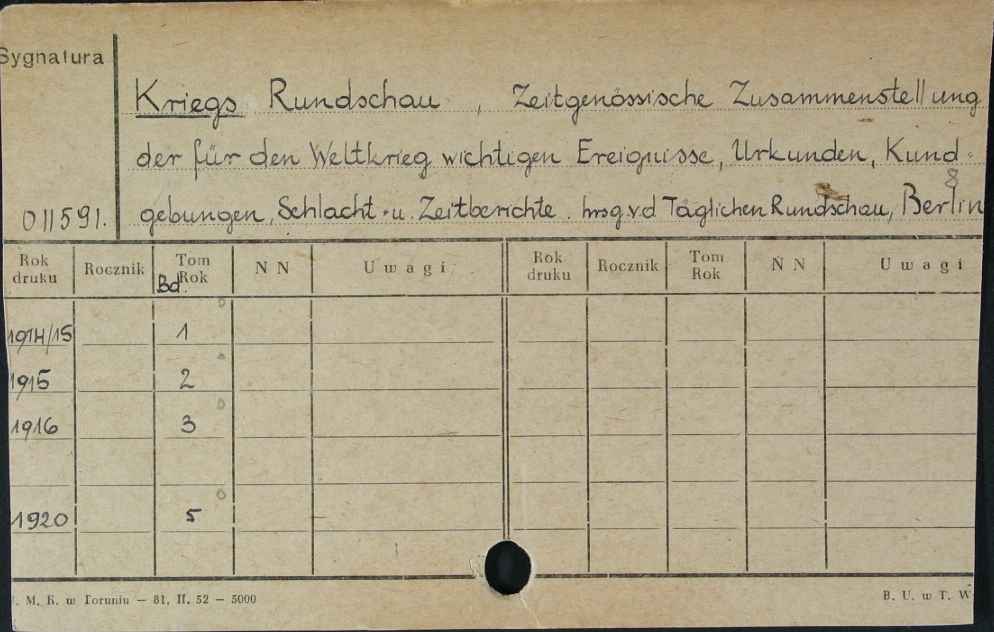 Sygnatura
Kriegs Rundschau , Zeitgenössische Zusammenstellung
der für den Weltkrieg wichtigen Ereignisse, Urkunden, Kund-
8
011591. gebungen, Schlacht- u. Zeitberichte. hrsg.v.d Täglichen Rundschau, Berlin
Rok druku Rocznik Tom Rok Bd. N N Uwagi Rok druku Rocznik Tom Rok N N Uwagi
1914/15 1
1915 2
1916 3
1920 5
. M. K. w Toruniu — 81, II. 52 — 5000 B. U. w T. W